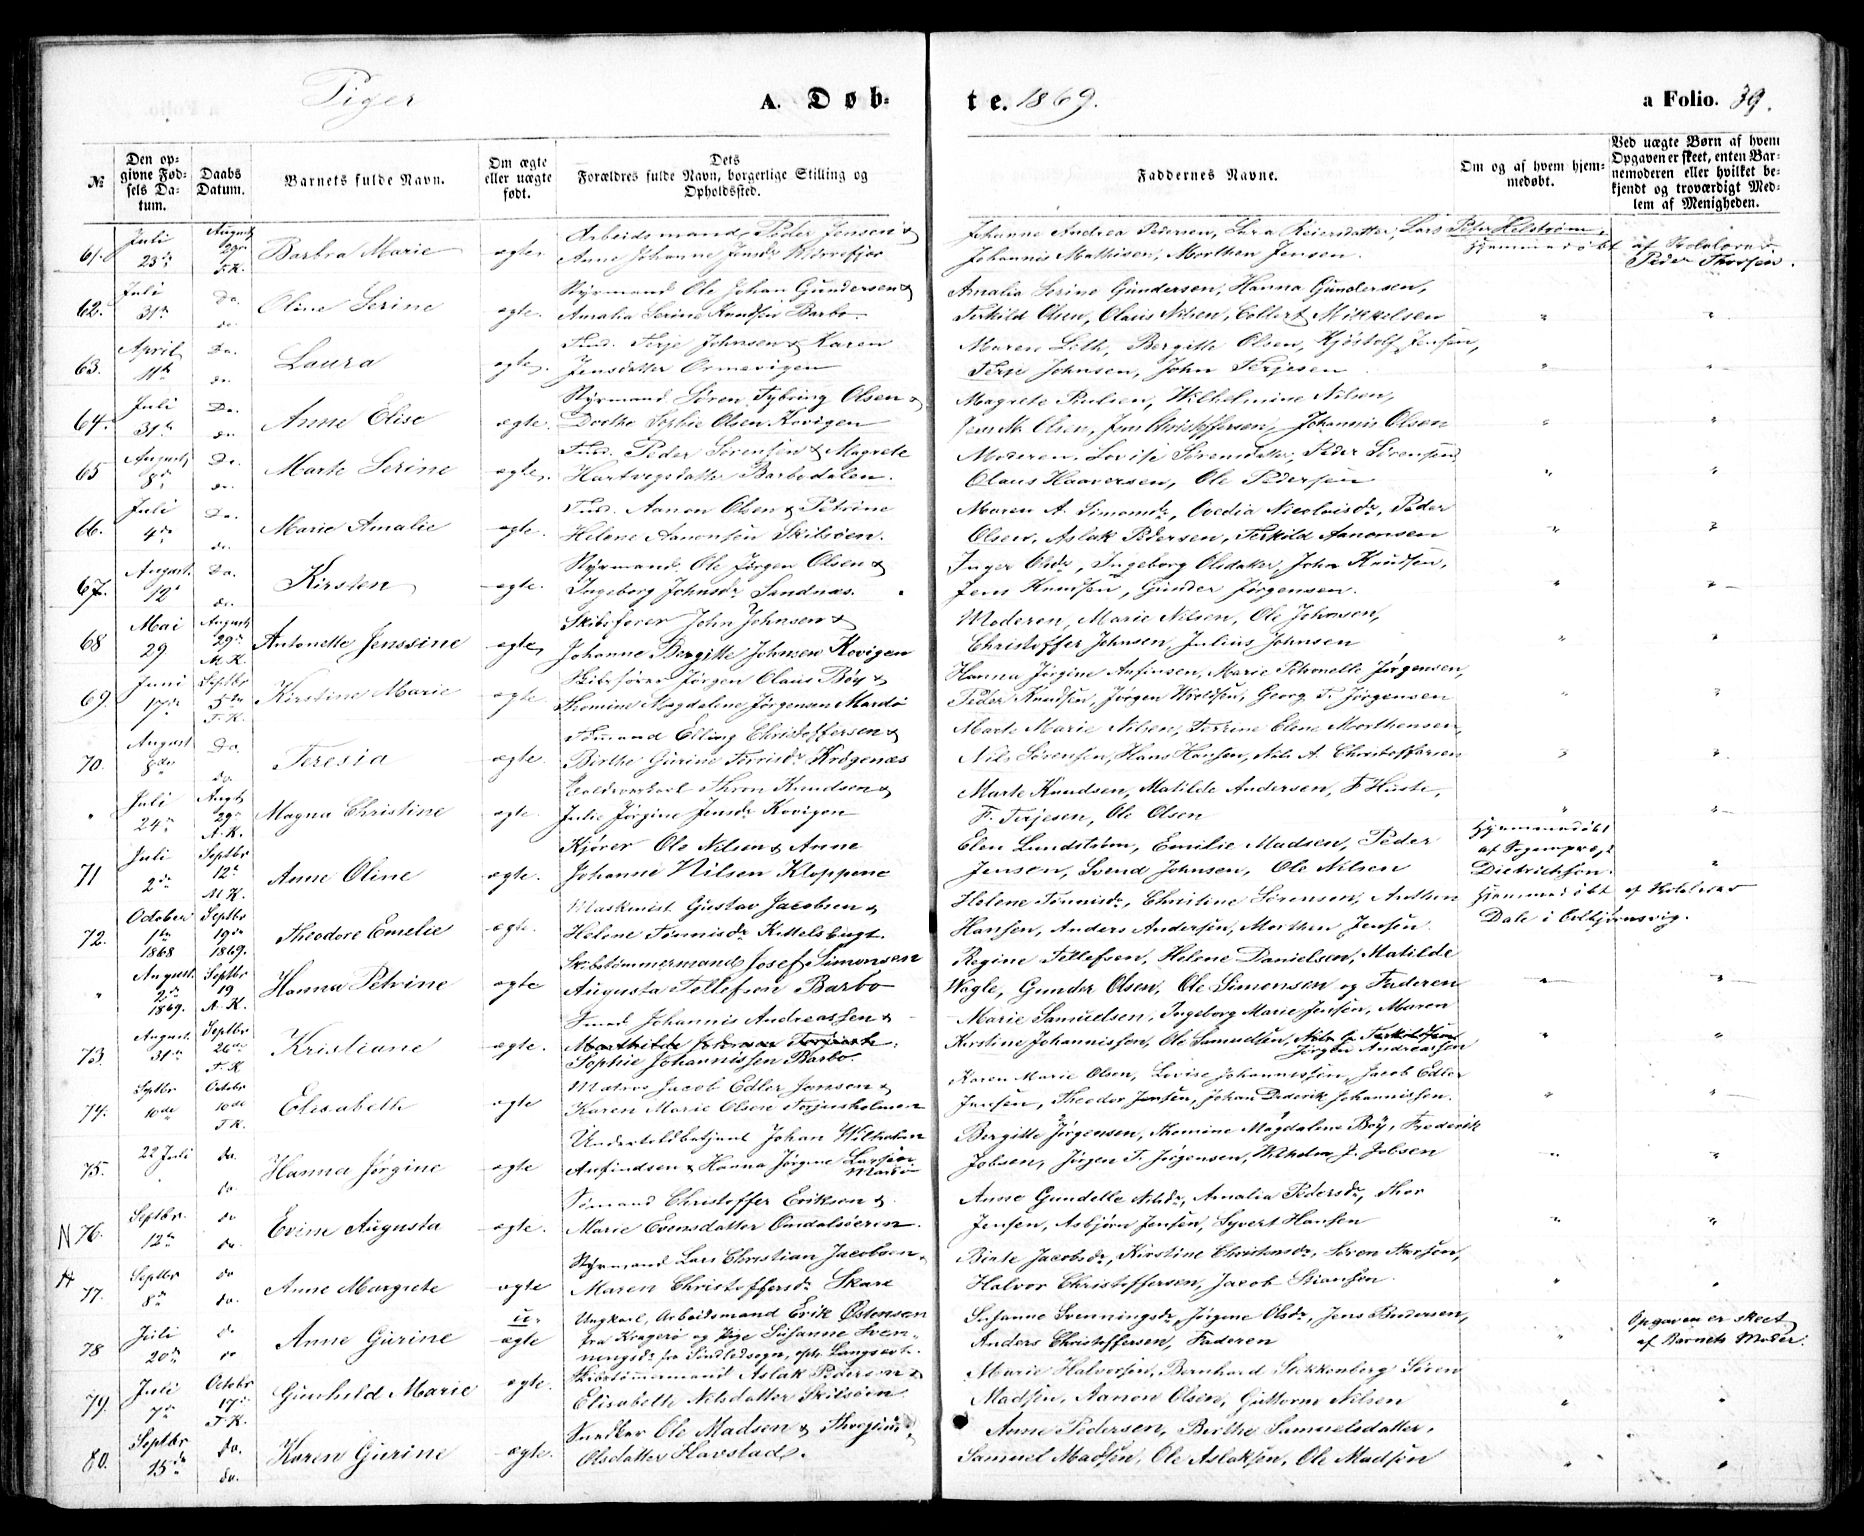 Piger
A. Døb-
te. 1869.
a Folio. 39.
№
Den op-
givne Fød-
sels Da-
tum.
Daabs
Datum.
Barnets fulde Navn.
Om ægte
eller uægte
født.
Dets
Forældres fulde Navn, borgerlige Stilling og
Opholdssted.
Faddernes Navne.
Om og af hvem hjem-
medøbt.
Ved uægte Børn af hvem
Opgaven er skeet, enten Bar-
nemoderen eller hvilket be-
kjendt og troværdigt Med-
lem af Menigheden.
61. Juli 23de August 29de T.K. Barbra Marie ægte. Arbeidsmand, Peder Jensen &
Anne Johanne Jensdr
Johanne Andrea Pedersen, Lars Peter Helstrøm,
Johannis Mathisen, Morthen Jensen.
Hjemmedøbt af Skolelærer Peder Thorsen.
62. Juli 31te Do. do. Oline Serine ægte. Styrmand Ole Johan Gundersen &
Amalia Serine Knudsen Barbo
Amalia Serine Gundersen, Hanna Gundersen,
Terkild Olsen, Claus Nilsen, Collert Mikkelsen
63. April 11te Do. do. Laura ægte. Terje Johnsen & Karen
Jensdatter Ormevigen
Maren Lith, Bergitte Olsen, Kjøstolf Jensen,
Terje Johnsen, John Terjesen
64. Juli 31te Do. do. Anne Elise ægte. Styrmand Søren Fybring Olsen &
Dorthe Sophie Olsen Kovigen
Magrete Nilsen, Wilhelmine Nilsen,
Jens N. Olsen, Jens Christoffersen, Johannis Olsen
65 August 8de Do. do. Marte Serine ægte. Peder Sørensen & Magrete
Hartvigsdatter Barbodalen.
Moderen, Lovise Sørensdatter, Peder Sørensen,
Claus Haaversen, Ole Pedersen
66. Juli 4de Do. do. Marie Amalie ægte. Aanon Olsen & Petrine
Helene Aanonsen Skilsøen.
Maren A. Simonsdr, Ovedia Nicolaisdr, Peder
Olsen, Aslak Pedersen, Terkild Aanonsen
67. August 12te Do. do. Kirsten ægte. Styrmand Ole Jørgen Olsen &
Ingeborg Johnsdr Sandnæs.
Inger Olsdr, Ingeborg Olsdatter, John Knudsen,
Jens Knudsen, Gunder Jørgensen.
68 Mai 29 August 29de M.K. Antonette Jenssine ægte, Skibsfører John Johnsen &
Johanne Bergitte Johnsen Kovigen
Moderen, Marie Nilsen, Ole Johnsen,
Christoffer Johnsen, Julius Johnsen
69. Juni 17de Septbr 5te T.K. Kirstine Marie ægte Skibsfører Jørgen Claus Bøy &
Thomine Magdalene Jørgensen Mardø
Hanna Jørgine Anfinsen, Marie Petronelle Jørgensen,
Peder Knudsen, Jørgen Knudsen, Georg F. Jørgensen
70. August 8de Do. do. Teresia ægte. Sømand Elling Christoffersen &
Birthe Gurine Tørrisdr Krøgenæs
Marte Marie Nilsen, Terrine Elene Morthensen,
Nils Sørensen, Hans Hansen, Nils A. Christoffersen
" Juli 24de Augt 29de A.K. Magna Christine ægte. Thron Knudsen &
Julie Jørgine Jensdr Kovigen
Marte Knudsen, Matilde Andersen, F. Huste,
F. Terjesen, Ole Olsen
71 Juli 2de Septbr 12te M.K. Anne Oline ægte. Kjører Ole Nilsen & Anne
Johanne Nilsen Kloppene
Elen Lundstrøm, Emilie Madsen, Peder
Jensen, Svend Johnsen, Ole Nilsen
Hjemmedøbt af Sogneprest Diedrichson.
72. October 1te 1868 Septbr 19de 1869. Theodore Emelie ægte. Maskinist Gustav Jacobsen &
Helene Tønnisdr Kittelsbugt.
Helene Tønnisdr, Christine Sørensen, Anthon
Hansen, Anders Andersen, Morthen Jensen
Hjemmedøbt af Skolelærer
Dale i Colbjørnsvig.
" August 2de 1869. Septbr 19 A.K. Hanna Petrine ægte Skibstømmermand Josef Simonsen
Augusta Tellefsen Barbo
Regine Tellefsen, Helene Danielsen, Matilde
Wogle, Gunder Olsen, Ole Simonsen og Faderen
73. August 31te Septbr 26de T.K. Kristiane ægte. Johannis Andreassen &
Sophie Johannissen Barbo.
Marie Samuelsen, Ingeborg Marie Jensen, Maren
Kirstine Johannissen, Ole Samuelsen,
Jørgen Andreassen
74. Septbr 10de Octobr 10de T.K. Elisabeth ægte Matros Jacob Edler Jensen &
Karen Marie Olsen Torjusholmen
Karen Marie Olsen, Lovise Johannessen, Jacob Edler
Jensen, Theodor Jensen, Johan Diderik Johannissen.
75. 22 Juli do. do Hanna Jørgine ægte Undertoldbetjent Johan Wilhelm
Anfindsen & Hanna Jørgine Larsen
Mardø
Bergitte Jørgensen, Thomine Magdalene Bøy, Frederik
Jobsen, Jørgen F. Jørgensen, Wilhelm J. Jobsen
N 76. Septbr. 12te do do. Evine Augusta ægte. Sømand Christoffer Erikson &
Marie Evensdatter Omdalsøeren.
Anne Gundelle Nilsdr, Amalia Pedersdr, Thor
Jensen, Asbjørn Jensen, Syvert Hansen
77. Septbr 8de do do. Anne Margrete ægte Styrmand Lars Christian Jacobsen &
Maren Christoffersdr Skare
Birte Jacobsdr, Kirstine Christensdr, Søren Larsen,
Halvor Christoffersen, Jacob Stiansen.
78 Juli 20de do do Anne Gurine u-
ægte Ungkarl, Arbeidsmand Erik Østensen
fra Kragerø og Pige Susanne Sven-
ningsdr fra Søndeledsogn, oph. Langsæeth.
Susanne Svenningsdr, Jørgine Olsdr, Jens Pedersen,
Anders Christoffersen, Faderen
Opgaven er skeet
af Barnets Moder.
79. Juli 7de Octobr 17de T.K. Gunhild Marie ægte. Skibstømmermand Aslak Pedersen &
Elisabeth Nilsdatter Skilsøen
Marie Halvorsen, Bernhard Stekkenberg, Søren
Madsen, Aanon Olsen, Guttorm Nilsen
80. Septbr 25de do. do. Karen Gurine ægte. Snedker Ole Madsen &
Olsdatter Havstad.
Anne Pedersen, Birthe Samuelsdatter,
Samuel Madsen, Ole Aslaksen, Ole Madsen